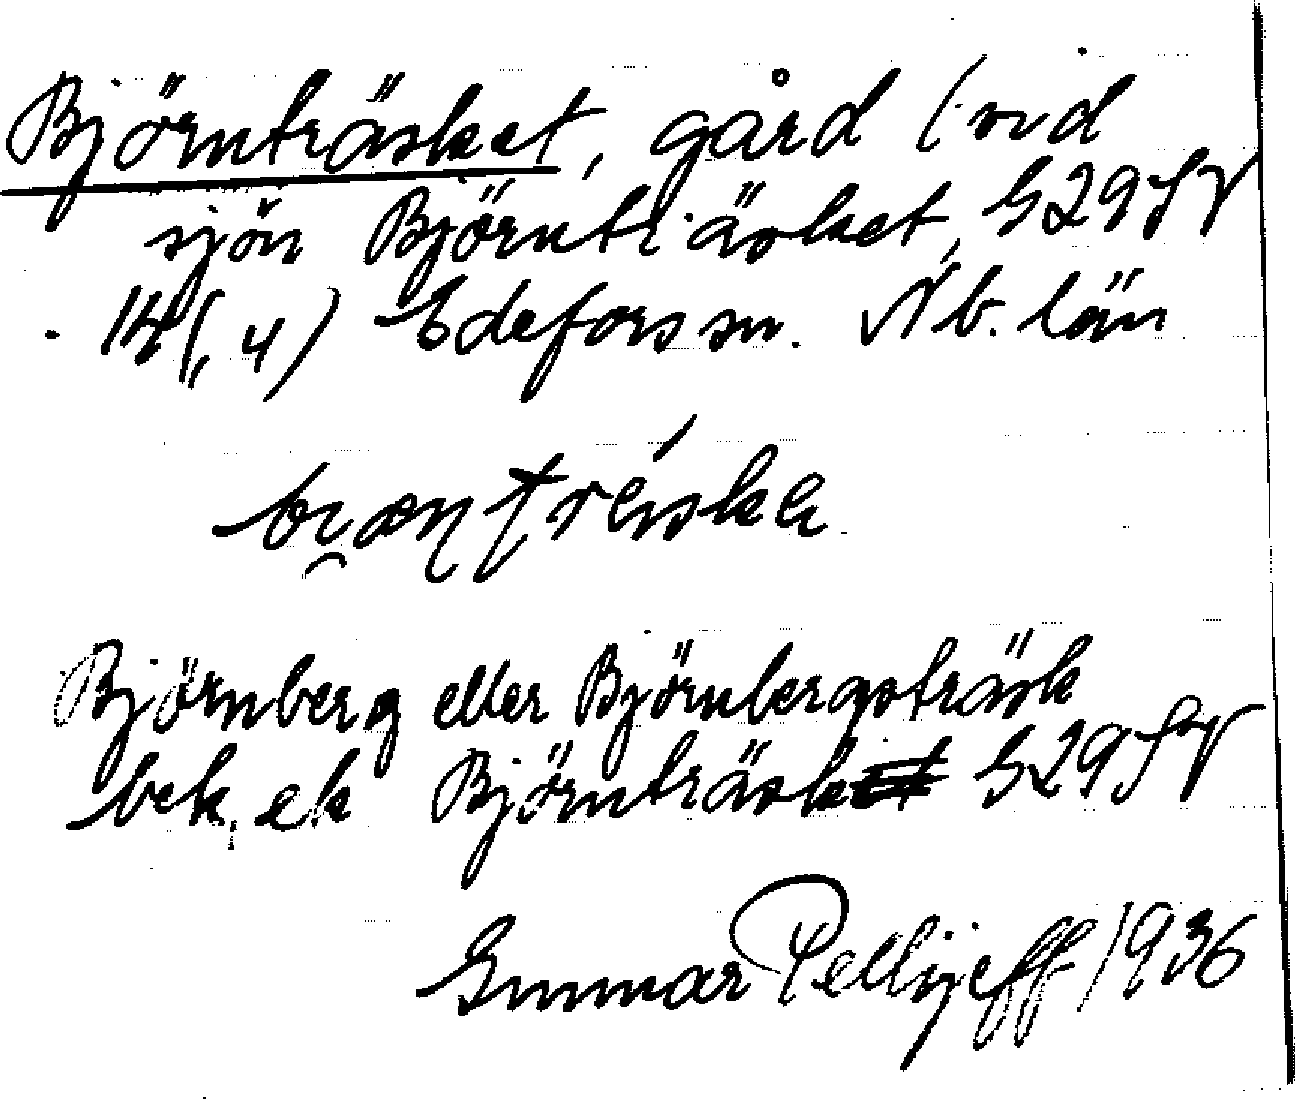 Björnträsket, gård (vid
sjön Björnträsket, G29SV
14(,4) Edefors sn. Nb. län
Björnberg eller Björnbergsträsk
bek, ek Björnträsk G29SV
Gunnar Pellijeff 1936